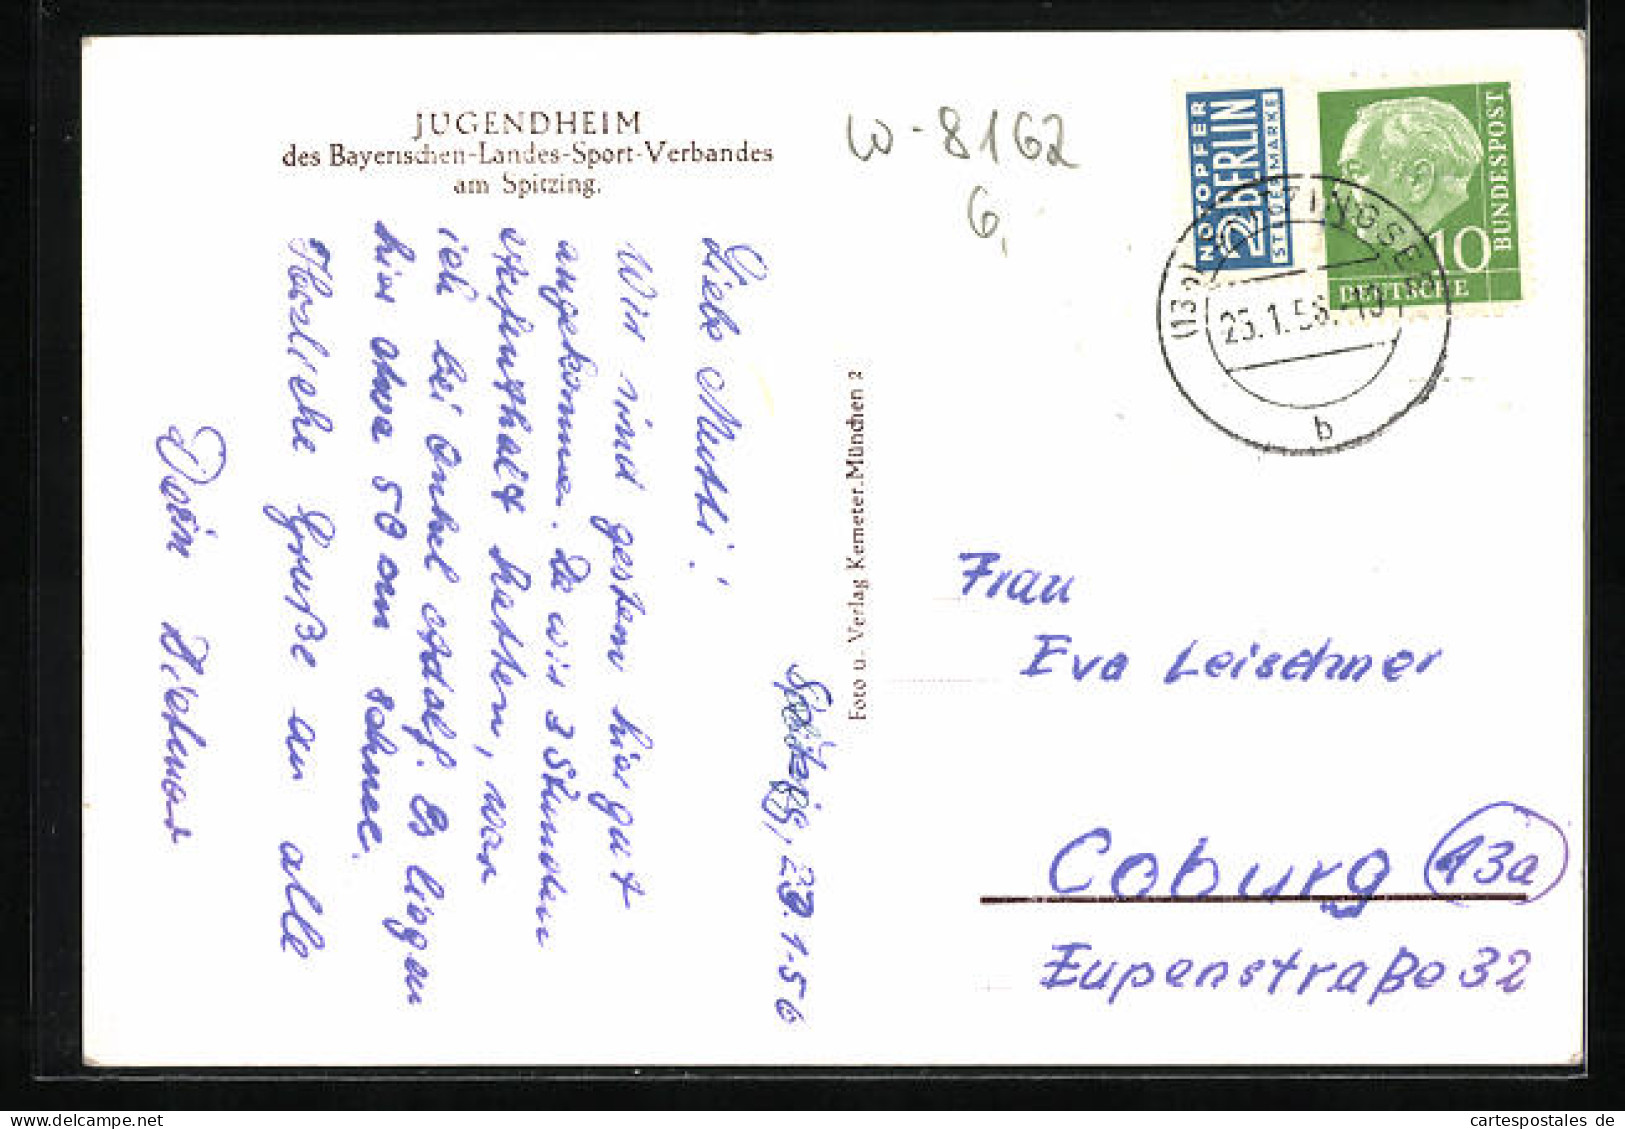 JUGENDHEIM
des Bayerischen-Landes-Sport-Verbandes
am Spitzing.
W-8162
6,
NOTOPFER
2 BERLIN
STEUERMARKE
BUNDESPOST
10
DEUTSCHE
23.1.56.-19
b
Foto u. Verlag Kemeter. München 2
Spitzing, 23.1.56
Liebe Mutti!
Wir sind gestern hier gut
angekommen. Da wir 3 Stunden
Aufenthalt hatten, war
ich bei Onkel Adolf. Es liegen
hier etwa 50 cm Schnee.
Herzliche Grüße an alle
Dein Dietmar
Frau
Eva Leischner
Coburg 13a
Eupenstraße 32
cartespostales.de